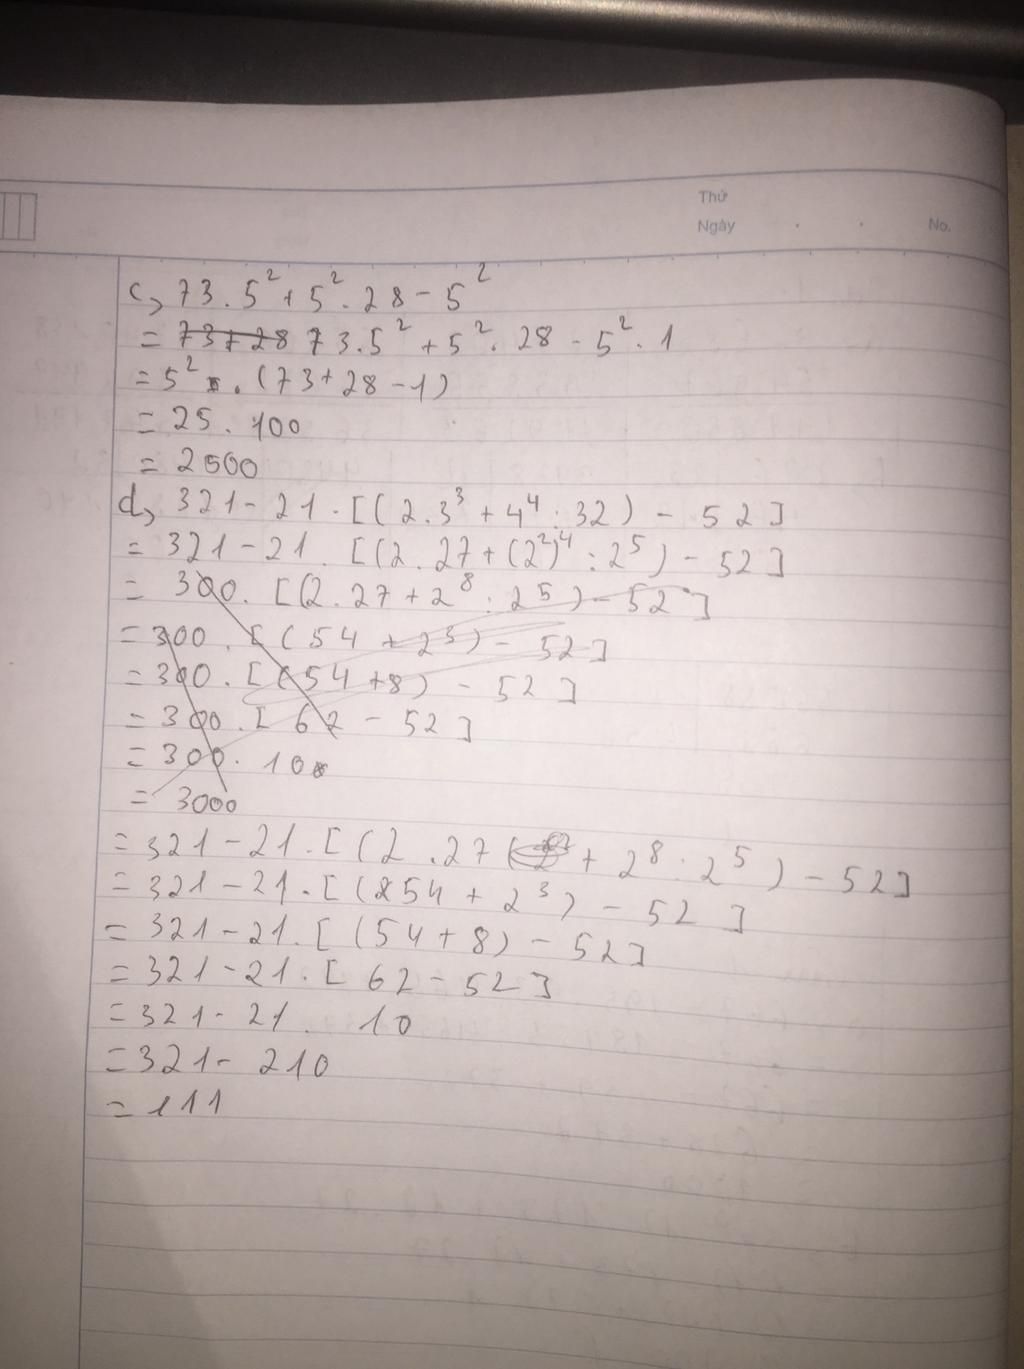 Thứ
Ngày . . No.
c, 73.5² + 5².28 - 5²
= 73+28 73.5² + 5².28 - 5².1
= 5².(73+28-1)
= 25.100
= 2500
d, 321-21.[(2.3³ + 4⁴:32) - 52]
= 321-21.[(2.27+(2²)⁴:2⁵) - 52]
= 300.[(2.27+2⁸:2⁵) - 52]
= 300.[(54+2³) - 52]
= 300.[(54+8) - 52]
= 300.[62 - 52]
= 300.10
= 3000
= 321-21.[(2.27 + 2⁸:2⁵) - 52]
= 321-21.[(54 + 2³) - 52]
= 321-21.[(54+8) - 52]
= 321-21.[62-52]
= 321-21.10
= 321-210
= 111